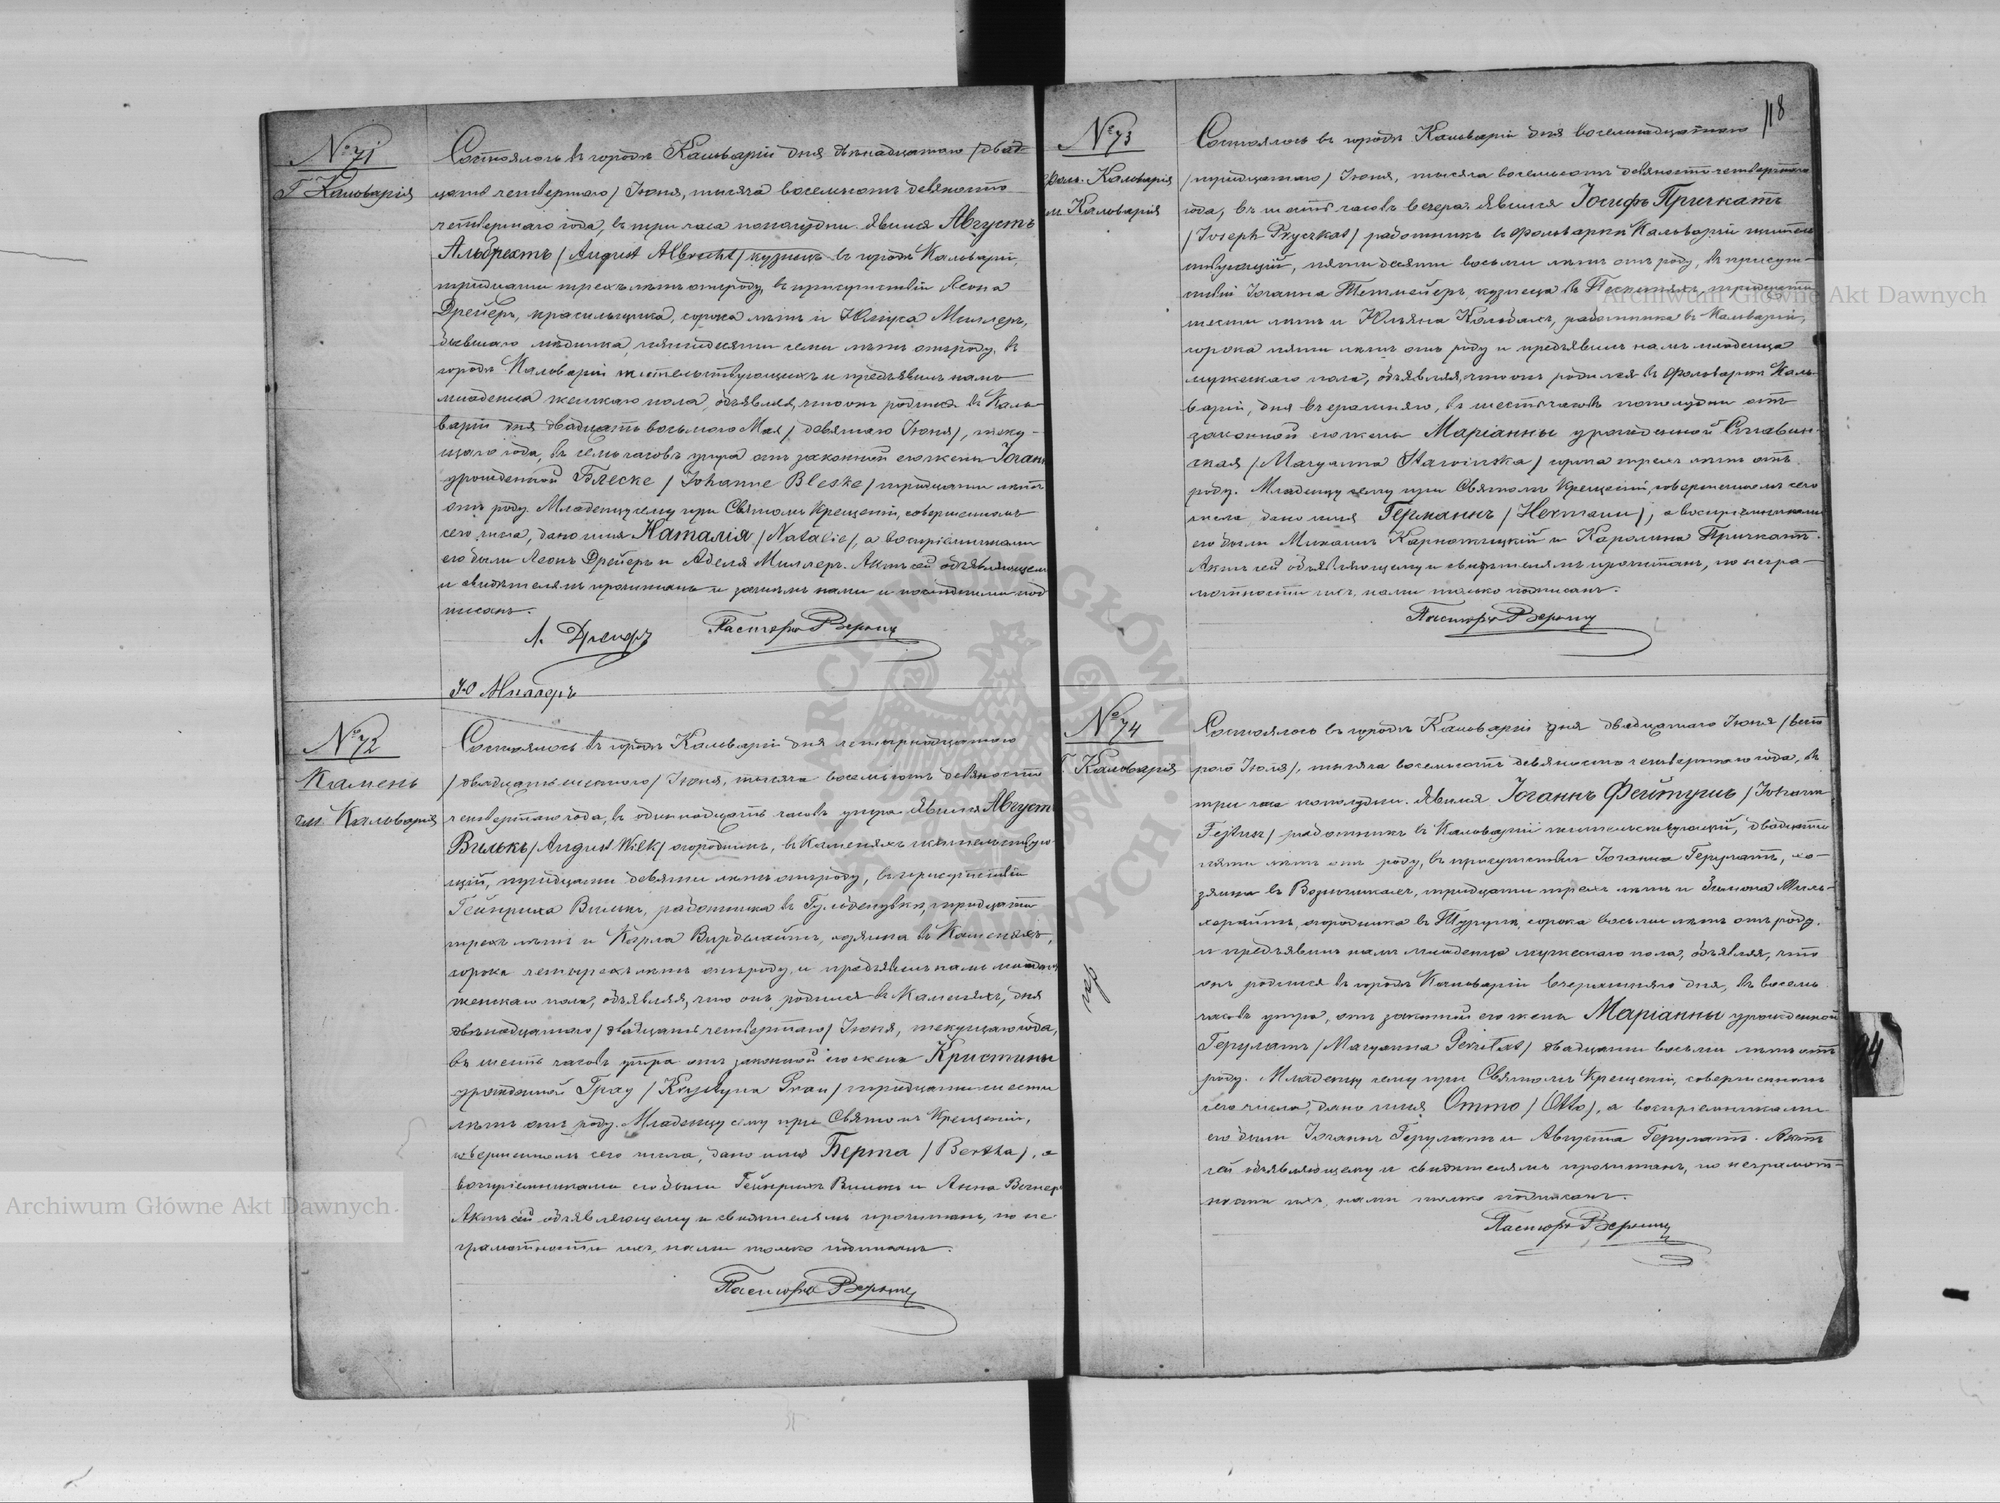 № 71
Г. Кальварія
Состоялось въ городѣ Кальваріи дня двѣнадцатаго /двад
цать четвертаго/ Іюня, тысяча восемьсотъ девяносто
четвертаго года, въ три часа пополудни. Явился Августъ
Альбрехтъ /August Albrecht/ кузнецъ въ городѣ Кальваріи,
тридцати трехъ лѣтъ отъ роду, въ присутствіи Леона
Дрейеръ, красильщика, сорока лѣтъ и Юліуса Миллеръ,
бывшаго мѣдника, пятидесяти семи лѣтъ отъ роду, въ
городѣ Кальваріи жительствующихъ и предъявилъ намъ
младенца женскаго пола, объявляя, что онъ родился въ Каль
варіи дня двадцать восьмого Мая /девятаго Іюня/, теку-
щаго года, въ семь часовъ утра отъ законной его жены Іоганны
урожденной Блеске /Johanne Bleske/ тридцати лѣтъ
отъ роду. Младенцу сему при Святомъ Крещеніи, совершенномъ
сего числа, дано имя Наталія /Natalie/, а воспріемниками
его были Леонъ Дрейеръ и Аделя Миллеръ. Актъ сей объявляющему
и свидѣтелямъ прочитанъ и затѣмъ нами и послѣдними под
писанъ.
Л. Дрейеръ Пасторъ
Ю Миллеръ
№ 72
Камень
гм. Кальварія
Состоялось въ городѣ Кальваріи дня четырнадцатаго
/двадцать шестого/ Іюня, тысяча восемьсотъ девяносто
четвертаго года, въ одиннадцать часовъ утра. Явился Августъ
Вилькъ /August Wilk/ огородникъ, въ Каменяхъ жительствую-
щій, тридцати девяти лѣтъ отъ роду, въ присутствіи
Гейнриха Вилькъ, работника въ тридцати
трехъ лѣтъ и Карла хозяина въ Каменяхъ,
сорока четырехъ лѣтъ отъ роду, и предъявилъ намъ младенца
женскаго пола, объявляя, что онъ родился въ Каменяхъ, дня
двѣнадцатаго /двадцать четвертаго/ Іюня, текущаго года,
въ шесть часовъ утра отъ законной его жены Кристины
урожденной Грау /Krystyna Grau/ тридцати шести
лѣтъ отъ роду. Младенцу сему при Святомъ Крещеніи,
совершенномъ сего числа, дано имя Берта /Bertha/, а
воспріемниками его были Гейнрихъ Вилькъ и Анна Вегнеръ
Актъ сей объявляющему и свидѣтелямъ прочитанъ, по не-
грамотности ихъ, нами только подписанъ.
Пасторъ
118
№ 73
Фольв. Кальварія
гм. Кальварія
Состоялось въ городѣ Кальваріи дня восемнадцатаго
/тридцатаго/ Іюня, тысяча восемьсотъ девяносто четвертаго
года, въ шесть часовъ вечера. Явился Іосифъ Причкатъ
/Joseph Pryczkat/ работникъ въ фольваркѣ Кальваріи житель
ствующій, пятидесяти восьми лѣтъ отъ роду, въ присут-
ствіи Іоганна Тетмейеръ, кузнеца въ тридцати
шести лѣтъ и Юльяна работника въ Кальваріи,
сорока пяти лѣтъ отъ роду и предъявилъ намъ младенца
мужескаго пола, объявляя, что онъ родился въ фольваркѣ Каль-
варіи, дня вчерашняго, въ шесть часовъ пополудни отъ
законной его жены Маріанны урожденной Ставин-
ская /Maryanna Stawinska/ сорока трехъ лѣтъ отъ
роду. Младенцу сему при Святомъ Крещеніи, совершенномъ сего
числа, дано имя Германнъ /Hermann/, а воспріемниками
его были Михаилъ и Каролина Причкатъ.
Актъ сей объявляющему и свидѣтелямъ прочитанъ, по негра-
мотности ихъ, нами только подписанъ.
Пасторъ
№ 74
Г. Кальварія
Состоялось въ городѣ Кальваріи дня двадцатаго Іюня /вто
рого Іюля/, тысяча восемьсотъ девяносто четвертаго года, въ
три часа пополудни. Явился Іоганнъ Фейтушъ /Johann
Fejtusz/ работникъ въ Кальваріи жительствующій, двадцати
пяти лѣтъ отъ роду, въ присутствіи Іоганна Герулатъ, хо-
зяина въ тридцати трехъ лѣтъ и
огородника въ сорока восьми лѣтъ отъ роду.
и предъявилъ намъ младенца мужескаго пола, объявляя, что
онъ родился въ городѣ Кальваріи вчерашняго дня, въ восемь
часовъ утра, отъ законной его жены Маріанны урожденной
Герулатъ /Maryanna двадцати восьми лѣтъ отъ
роду. Младенцу сему при Святомъ Крещеніи, совершенномъ
сего числа, дано имя Отто /Otto/, а воспріемниками
его были Іоганнъ Герулатъ и Августа Герулатъ. Актъ
сей объявляющему и свидѣтелямъ прочитанъ, по неграмот-
ности ихъ, нами только подписанъ.
Пасторъ
Archiwum Główne Akt Dawnych
Archiwum Główne Akt Dawnych